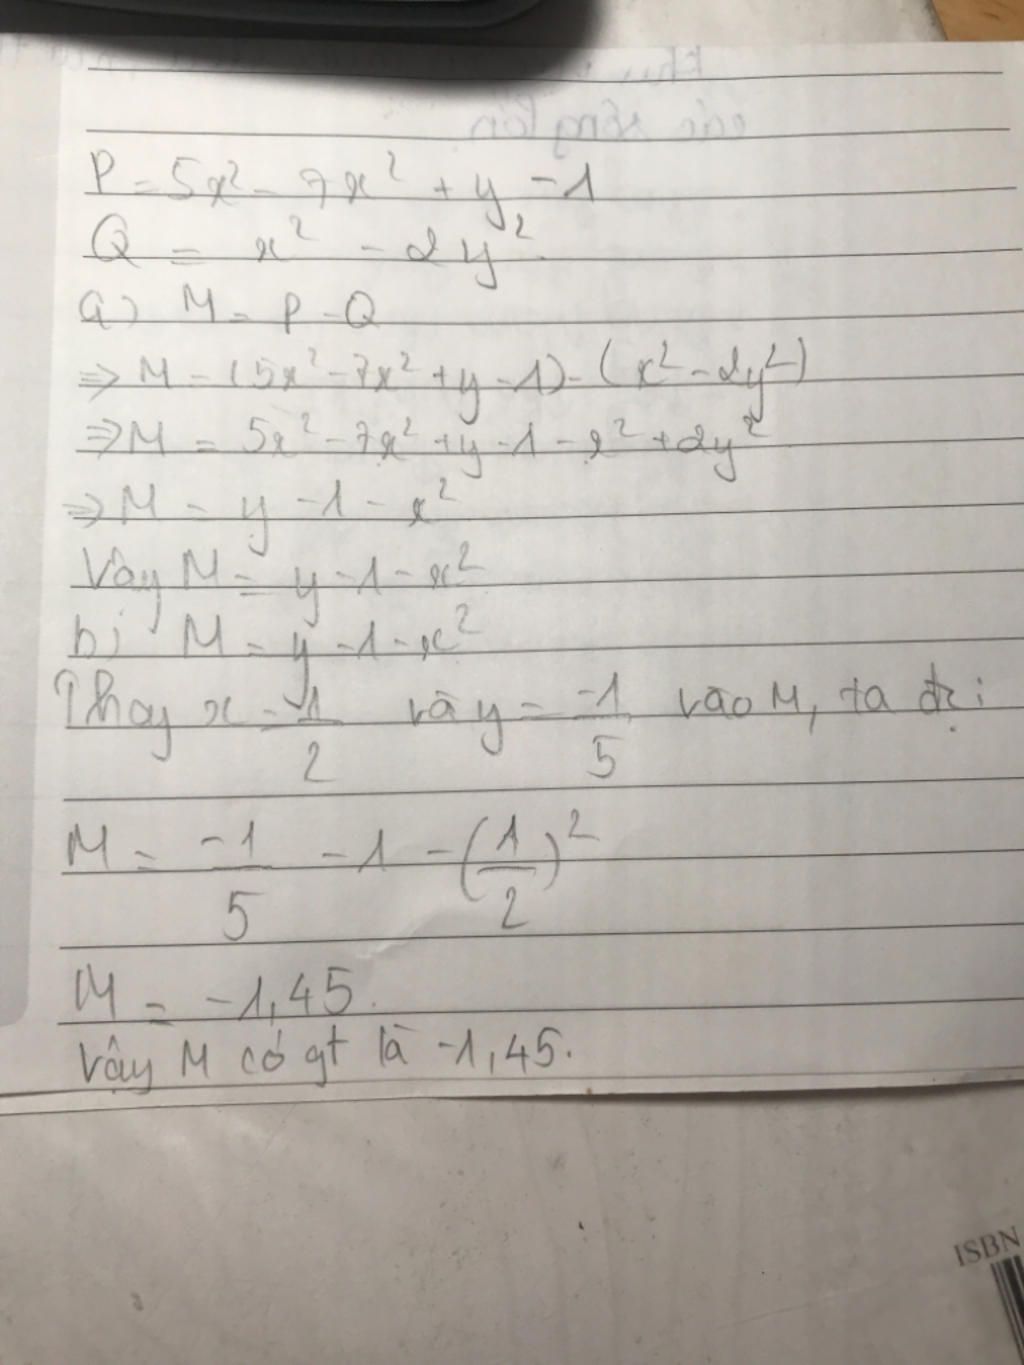 P = 5x² - 7x² + y - 1
Q = x² - 2y².
a) M = P - Q
⇒ M = (5x² - 7x² + y - 1) - (x² - 2y²)
⇒ M = 5x² - 7x² + y - 1 - x² + 2y²
⇒ M = y - 1 - x²
Vậy M = y - 1 - x²
b) M = y - 1 - x²
Thay x = 1/2 và y = -1/5 vào M, ta đc:
M = -1/5 - 1 - (1/2)²
M = -1,45.
Vậy M có gt là -1,45.
ISBN